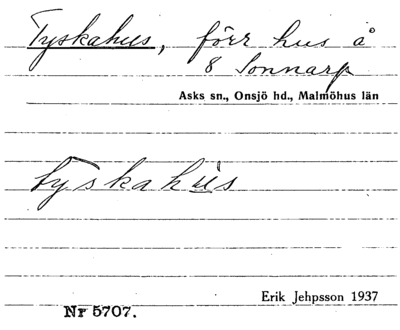 Tyskahus, förr hus å
8 Sonnarp
Asks sn., Onsjö hd., Malmöhus län
tyskahus
Erik Jehpsson 1937
Nr 5707.